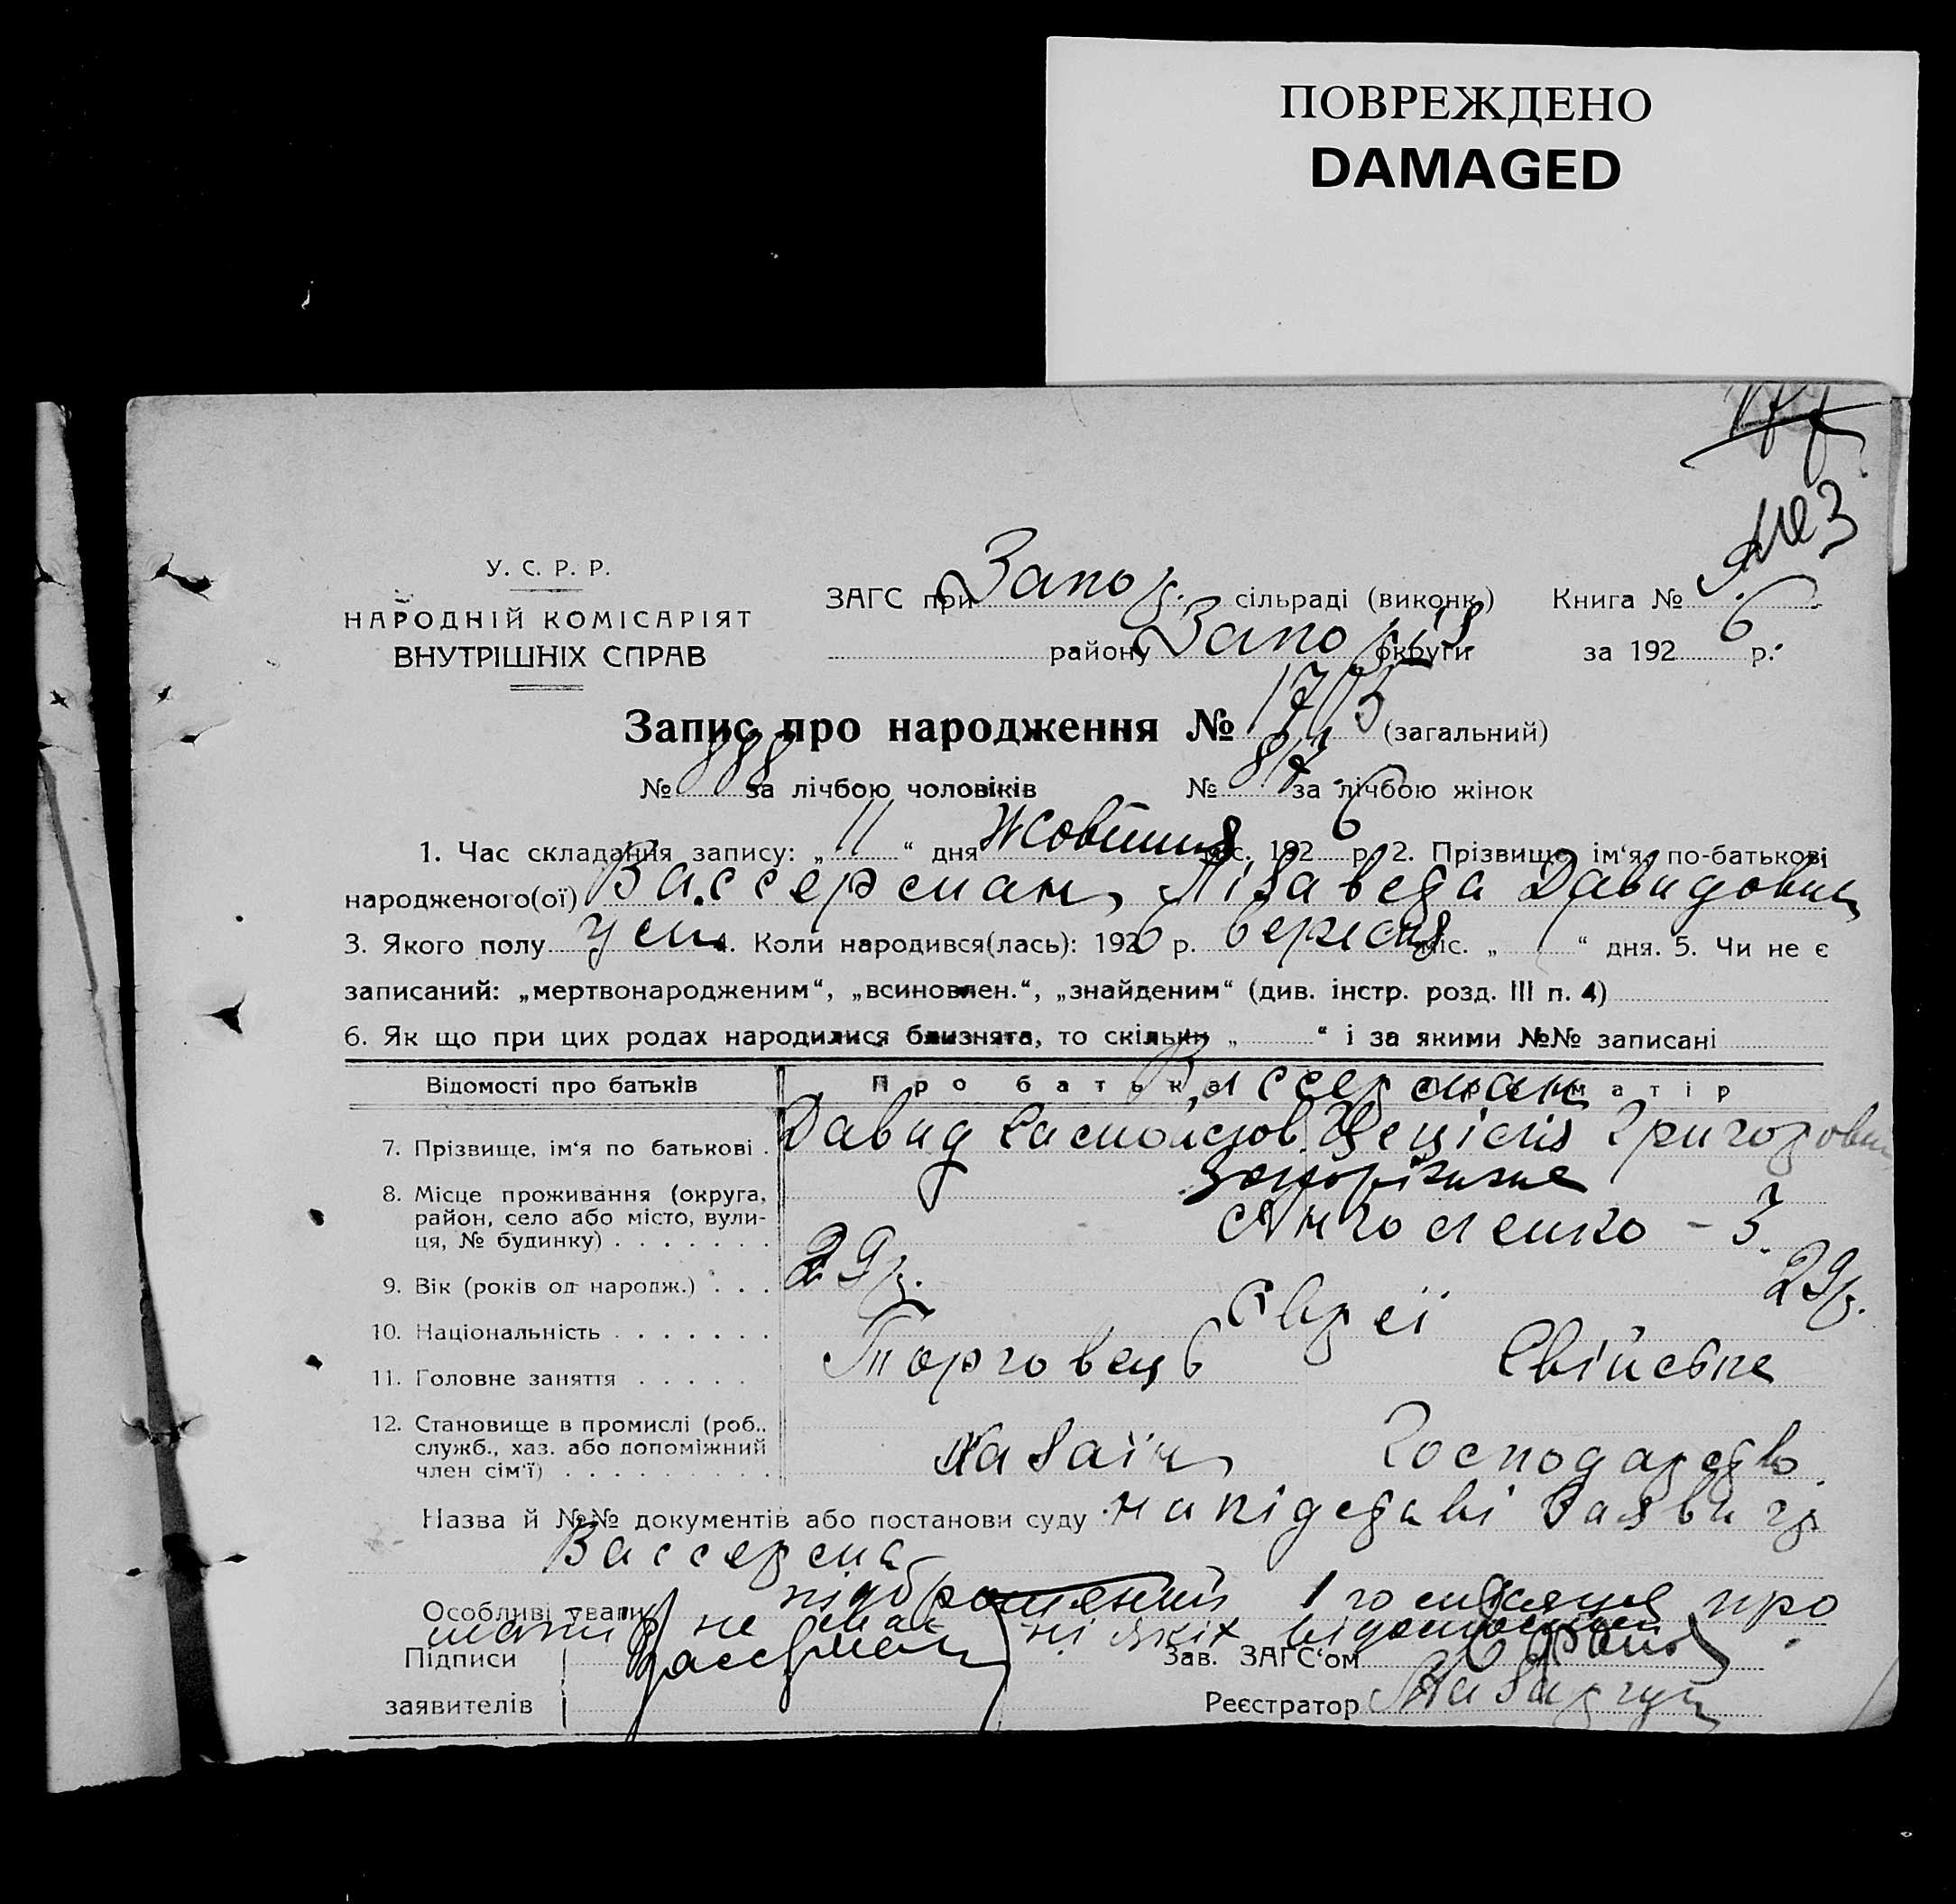 ПОВРЕЖДЕНО
DAMAGED
№ 3
У. С. Р. Р.
НАРОДНІЙ КОМІСАРІЯТ
ВНУТРІШНІХ СПРАВ
ЗАГС при Запор. сільраді (виконк.) Книга №
району Запор. округи за 1926 р.
Запис про народження № 1705 (загальний)
№ 888 за лічбою чоловіків № 817 за лічбою жінок
1. Час складання запису: „ 11 “ дня Жовтня міс. 1926 р. 2. Прізвище, ім‘я, по-батькові
народженого(ої) Вассерман Лізавета Давидовна
3. Якого полу 4. Коли народився(лась): 1926 р. вересня міс. „ 1 “ дня. 5. Чи не є
записаний: „мертвонародженим“, „всиновлен.“, „знайденим“ (див. інстр. розд. III п. 4)
6. Як що при цих родах народилися близнята, то скільки „ “ і за якими №№ записані
Відомості про батьків Про батька матір
Вассерман
7. Прізвище, ім‘я по батькові . Давид Григоровна
8. Місце проживання (округа, Запоріжжя
район, село або місто, вули-
ця, № будинку) . . . . . . . - 3
9. Вік (років од народж.) . . . 29 р. 29 р.
10. Національність . . . . . . . Євреї
11. Головне заняття . . . . . Торговець Свійське
12. Становище в промислі (роб.,
служб., хаз. або допоміжний Хазаїн Господарство
член сім‘ї) . . . . . . . . .
Назва й №№ документів або постанови суду на підставі заяви гр
Вассермана
Особливі уваги 1го місяця про
не має ні яких
Підписи Вассерман Зав. ЗАГС‘ом
заявителів Реєстратор